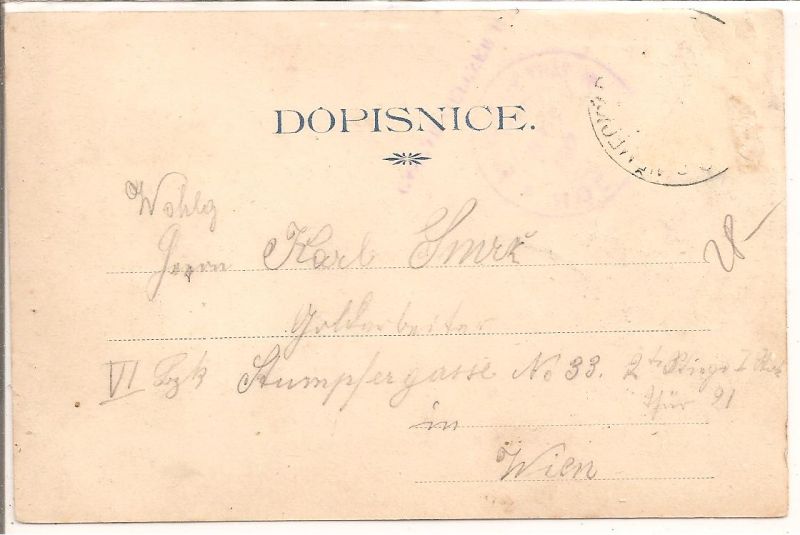 DOPISNICE.
Wohlg
Herrn Karl Smrž
Goldarbeiter
VI Bzk Stumpfergasse No 33. 2te Stiege I Stok
thür 21
in
Wien